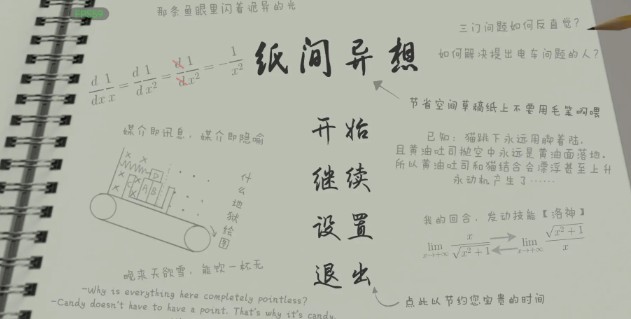 那条鱼眼里闪着诡异的光
三门问题如何反直觉？
如何解决提出电车问题的人？
d/dx 1/x = d/d 1/x² = d/d 1/x² = -1/x²
纸间异想
节省空间草稿纸上不要用毛笔啊喂
媒介即讯息，媒介即隐喻
开始
已知：猫跳下永远用脚着陆，
且黄油吐司抛空中永远是黄油面落地，
所以黄油吐司和猫结合会漂浮甚至上升
永动机产生了……
继续
什么地狱绘图
设置
我的回合，发动技能【洛神】
lim x→+∞ x/√(x²+1) lim x→+∞ √(x²+1)/x
晚来天欲雪，能饮一杯无
退出
-Why is everything here completely pointless?
-Candy doesn't have to have a point. That's why it's candy
点此以节约您宝贵的时间